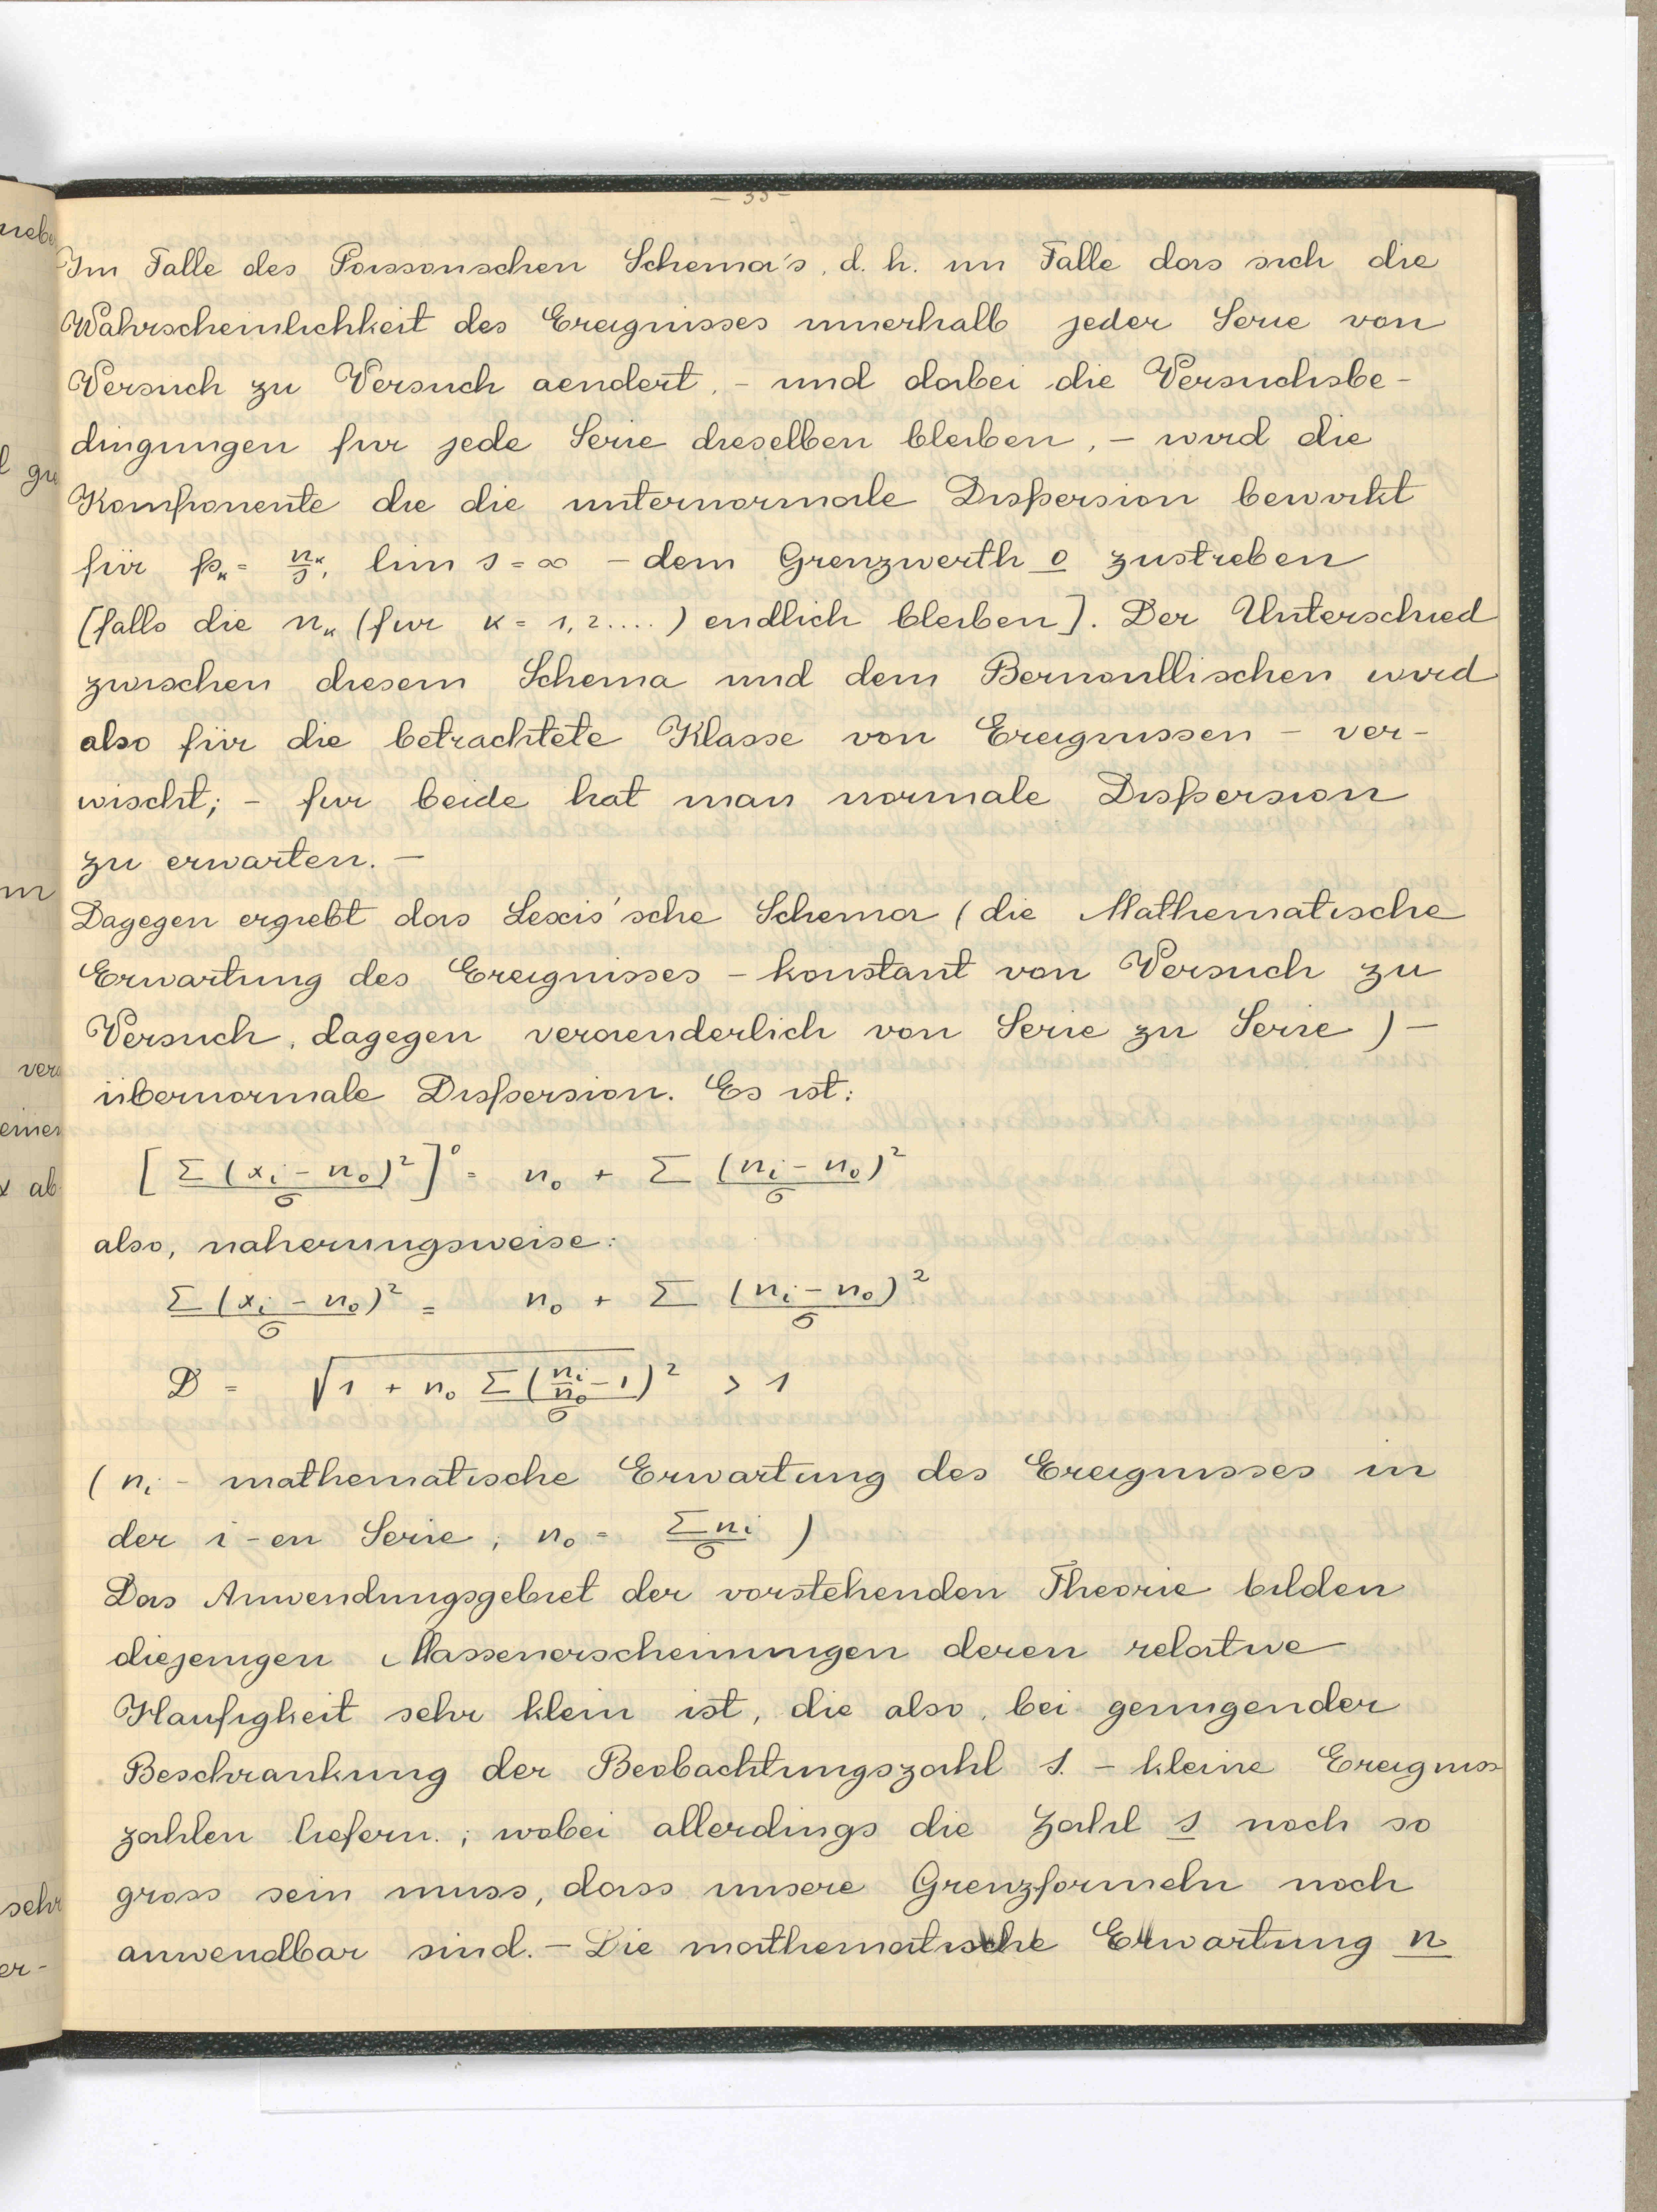 - 35 -
Im Falle des Poissonschen Schema's, d. h. im Falle das sich die
Wahrscheinlichkeit des Ereignisses innerhalb jeder Serie von
Versuch zu Versuch aendert, - und dabei die Versuchsbe-
dingungen fur jede Serie dieselben bleiben, - wird die
Komponente die die unternormale Dispersion bewirkt
für p_κ = n_κ/s, lim s = ∞ - dem Grenzwerth 0 zustreben
[falls die n_κ (fur κ = 1, 2....) endlich bleiben]. Der Unterschied
zwischen diesem Schema und dem Bernoullischen wird
also für die betrachtete Klasse von Ereignissen - ver-
wischt; - fur beide hat man normale Dispersion
zu erwarten. -
Dagegen ergiebt das Lexis'sche Schema (die Mathematische
Erwartung des Ereignisses - konstant von Versuch zu
Versuch, dagegen veraenderlich von Serie zu Serie) -
übernormale Dispersion. Es ist:
[Σ(x_i - n_0)²/σ]⁰ = n_0 + Σ (n_i - n_0)²/σ
also, naherungsweise:
Σ(x_i - n_0)²/σ = n_0 + Σ (n_i - n_0)²/σ
D = √(1 + n_0 Σ(n_i/n_0 - 1)²/σ) > 1
(n_i - mathematische Erwartung des Ereignisses in
der i-en Serie, n_0 = Σn_i/σ)
Das Anwendungsgebiet der vorstehenden Theorie bilden
diejenigen Massenerscheinungen deren relative
Haufigkeit sehr klein ist, die also, bei genugender
Beschrankung der Beobachtungszahl s. - kleine Ereigniss
zahlen liefern.; wobei allerdings die Zahl s noch so
gross sein muss, dass unsere Grenzformeln noch
anwendbar sind. - Die mathematische Erwartung n